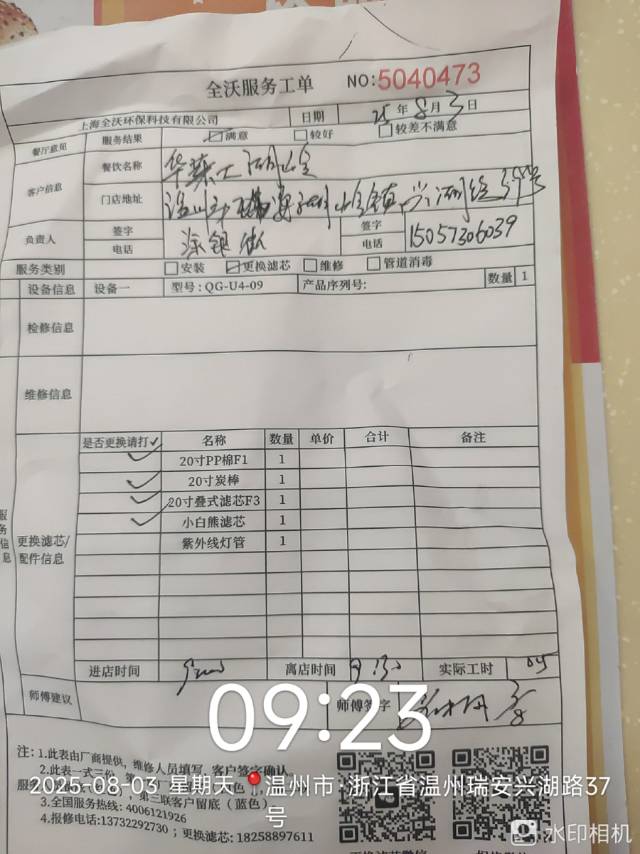 全沃服务工单 NO:5040473
上海全沃环保科技有限公司 日期 25年8月3日
餐厅意见 服务结果 满意 较好 较差不满意
客户信息 餐饮名称 华莱士
门店地址
负责人 签字 签字
电话 电话 15057306039
服务类别 安装 更换滤芯 维修 管道消毒
设备信息 设备一 型号: QG-U4-09 产品序列号: 数量 1
检修信息
维修信息
更换滤芯/配件信息 是否更换请打✓ 名称 数量 单价 合计 备注
✓ 20寸PP棉F1 1
✓ 20寸炭棒 1
✓ 20寸叠式滤芯F3 1
✓ 小白熊滤芯 1
紫外线灯管 1
进店时间 离店时间 实际工时
师傅建议 师傅签字
09:23
注: 1.此表由厂商提供, 维修人员填写, 客户签字确认。
2.此表一式三份,
第三联客户留底 (蓝色) 。
3.全国服务热线: 4006121926
4.报修电话:13732292730 ; 更换滤芯: 18258897611
2025-08-03 星期天 温州市·浙江省温州瑞安兴湖路37号
水印相机